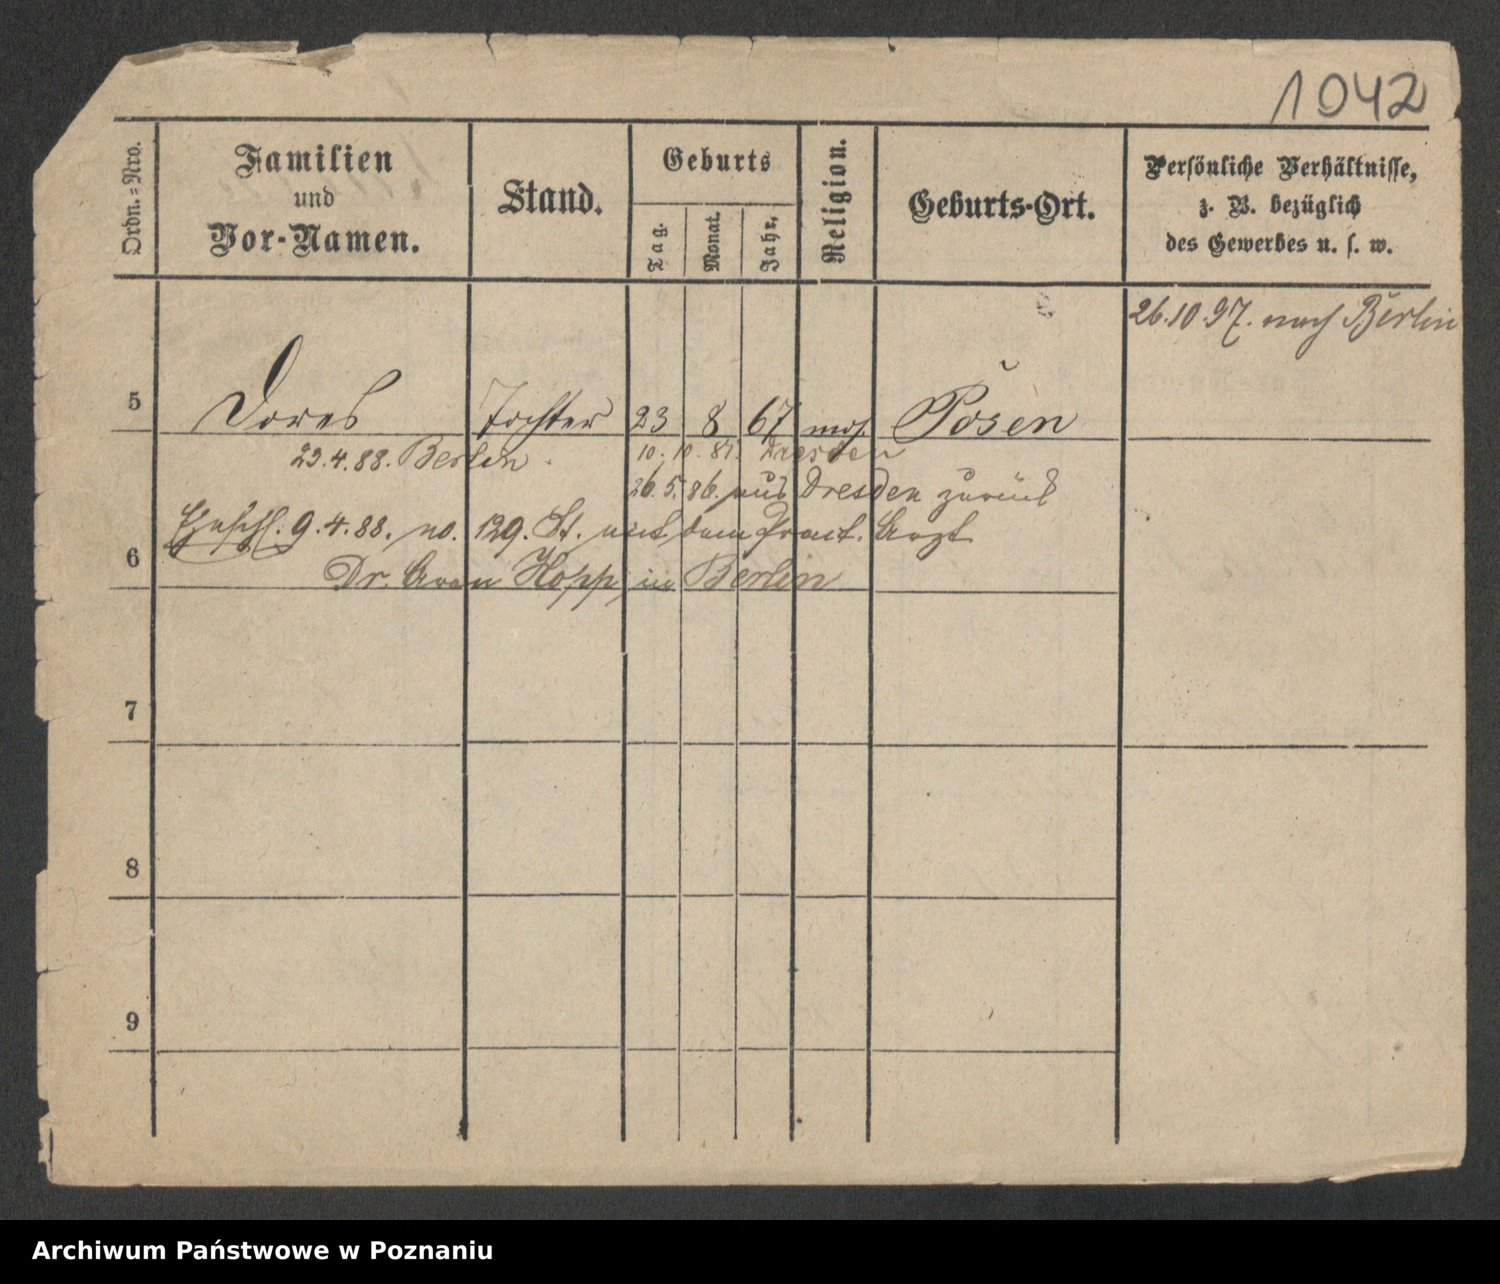 1042
Ordn.=Nro.
Familien
und
Vor-Namen.
Stand.
Geburts
Tag.
Monat.
Jahr.
Religion.
Geburts-Ort.
Persönliche Verhältnisse,
z. B. bezüglich
des Gewerbes u. s. w.
26.10.97. nach Berlin
5 Dores Tochter 23 8 67 mos. Posen
23.4.88. Berlin
10. 10. 85. Dresden
26. 5. 86. aus Dresden zurück
9.4.88. no. 129. St. mit dem Pract. Arzt
6 Dr. Hopp in Berlin
7
8
9
Archiwum Państwowe w Poznaniu